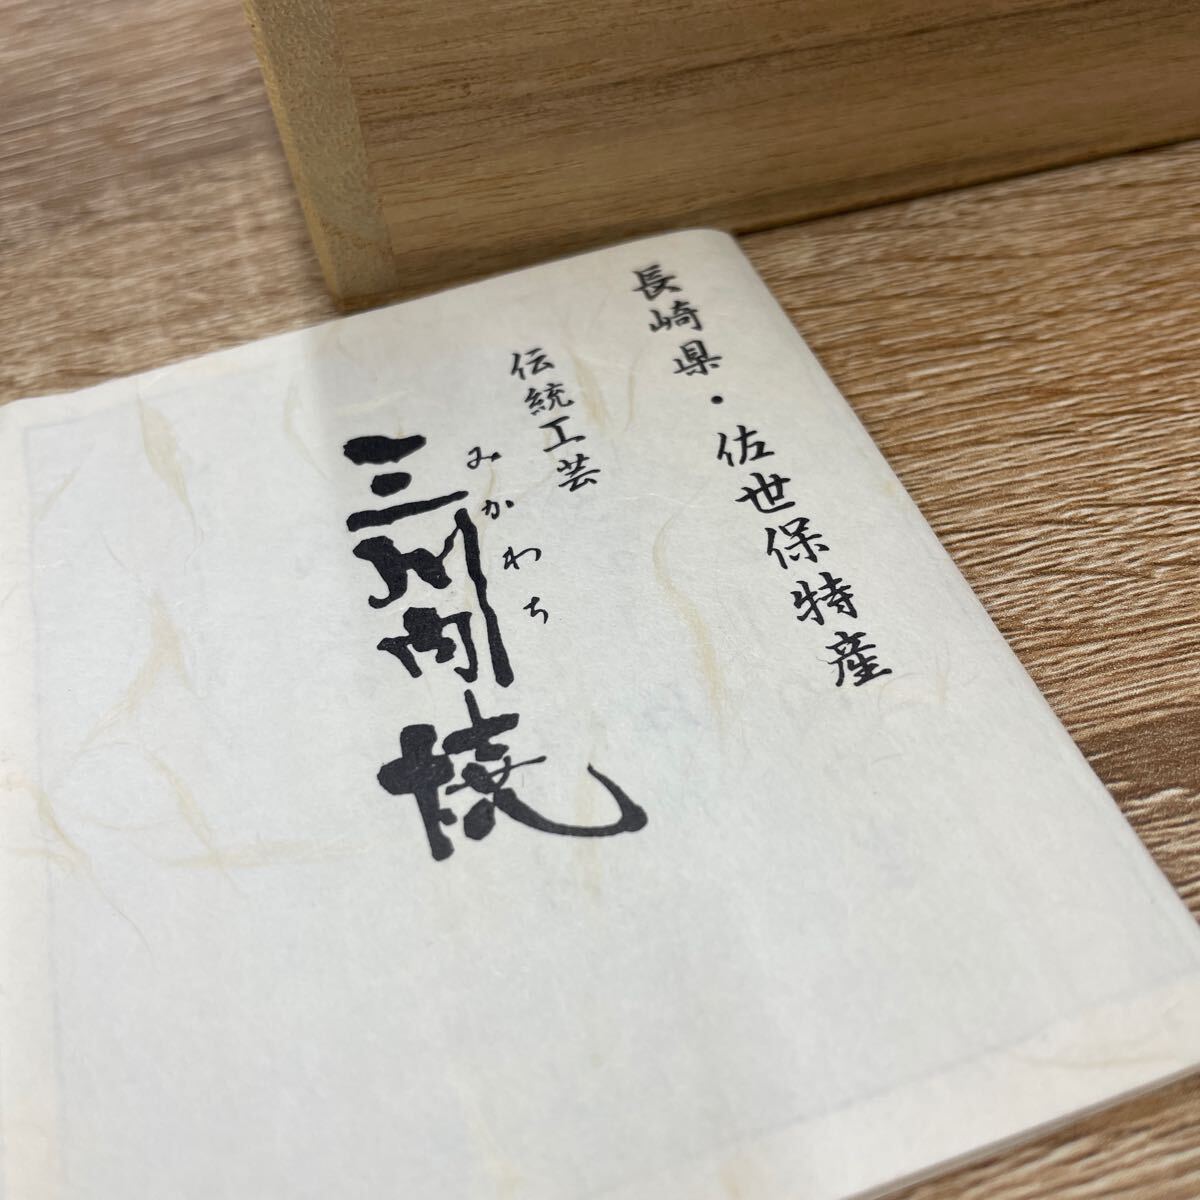 長崎県・佐世保特産
伝統工芸
みかわち
三川内焼